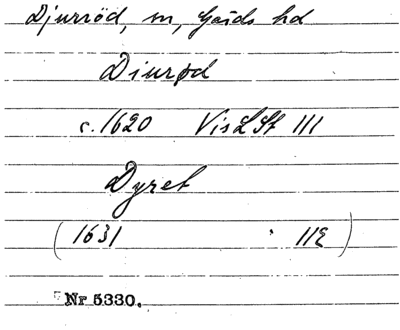 Djurröd, m, Gärds hd
Diurød
c. 1620 VisLSt 111
Dyret
(1631 " 112)
Nr 5330.